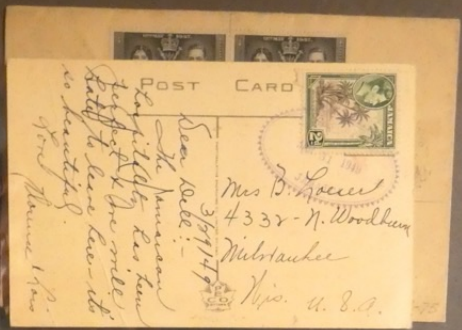 POST CARD
JAMAICA
3/29/40
Dear Dell:-
The Jamaican
hospitality has been
perfect & we will
hate to leave here - it's
so beautiful.
Love
Mrs B. Loeserl
4332-N. Woodburn
Milwaukee
Wis. U.S.A.